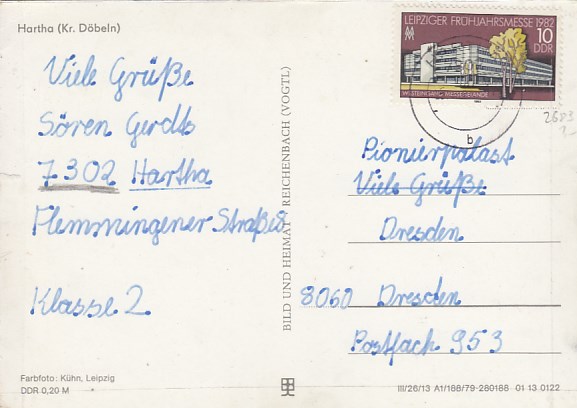 Hartha (Kr. Döbeln)
LEIPZIGER FRÜHJAHRSMESSE 1982
10
DDR
WESTEINGANG MESSEGELÄNDE
b
2683
Viele Grüße
Sören Gerdts
7302 Hartha
Flemmingener Straße
Klasse 2
BILD UND HEIMAT REICHENBACH (VOGTL)
Pionierpalast
Viele Grüße
Dresden
8060 Dresden
Postfach 953
Farbfoto: Kühn, Leipzig
DDR 0,20 M
III/26/13 A1/188/79-280188 01 13 0122